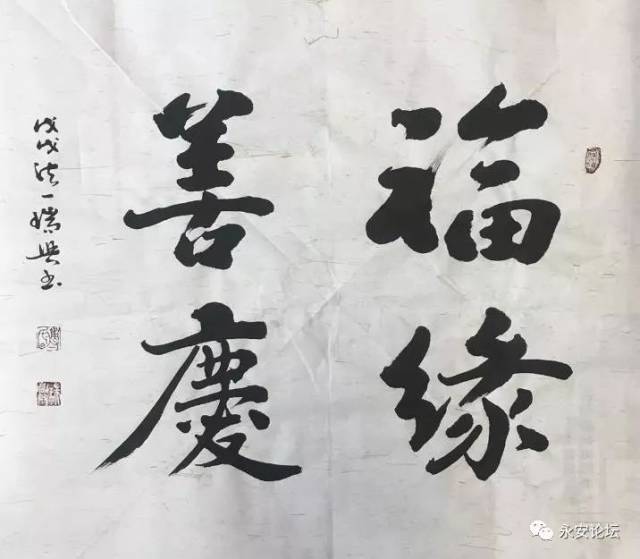 福缘
善慶
戊戌法一瑞典书
永安论坛